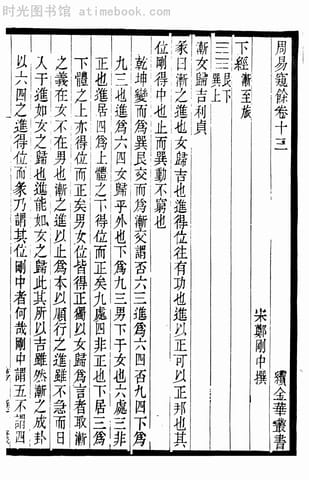 时光图书馆 atimebook.com
周易窺餘卷十三
續金華叢書
宋鄭剛中撰
下經漸至旅
艮下
巽上
漸女歸吉利貞
彖曰漸之進也女歸吉也進得位往有功也進以正可以正邦也其
位剛得中也止而巽動不窮也
乾坤變而爲巽艮交而爲漸交謂否六三進爲六四否九四下爲
九三也進爲六四女歸乎外也下爲九三男下于女也六處三非
正也進居四爲上體之下得位而正矣九處四非正也下居三爲
下體之上亦得位而正矣男女位皆得正獨以女歸爲言者取漸
之義在女不在男也漸之進以止爲本以順行之進雖不急而日
入于進如女之歸也進能如女之歸此其所以吉雖然漸之成卦
以六四之進得位而彖乃謂其位剛中者何哉剛中謂五不謂四